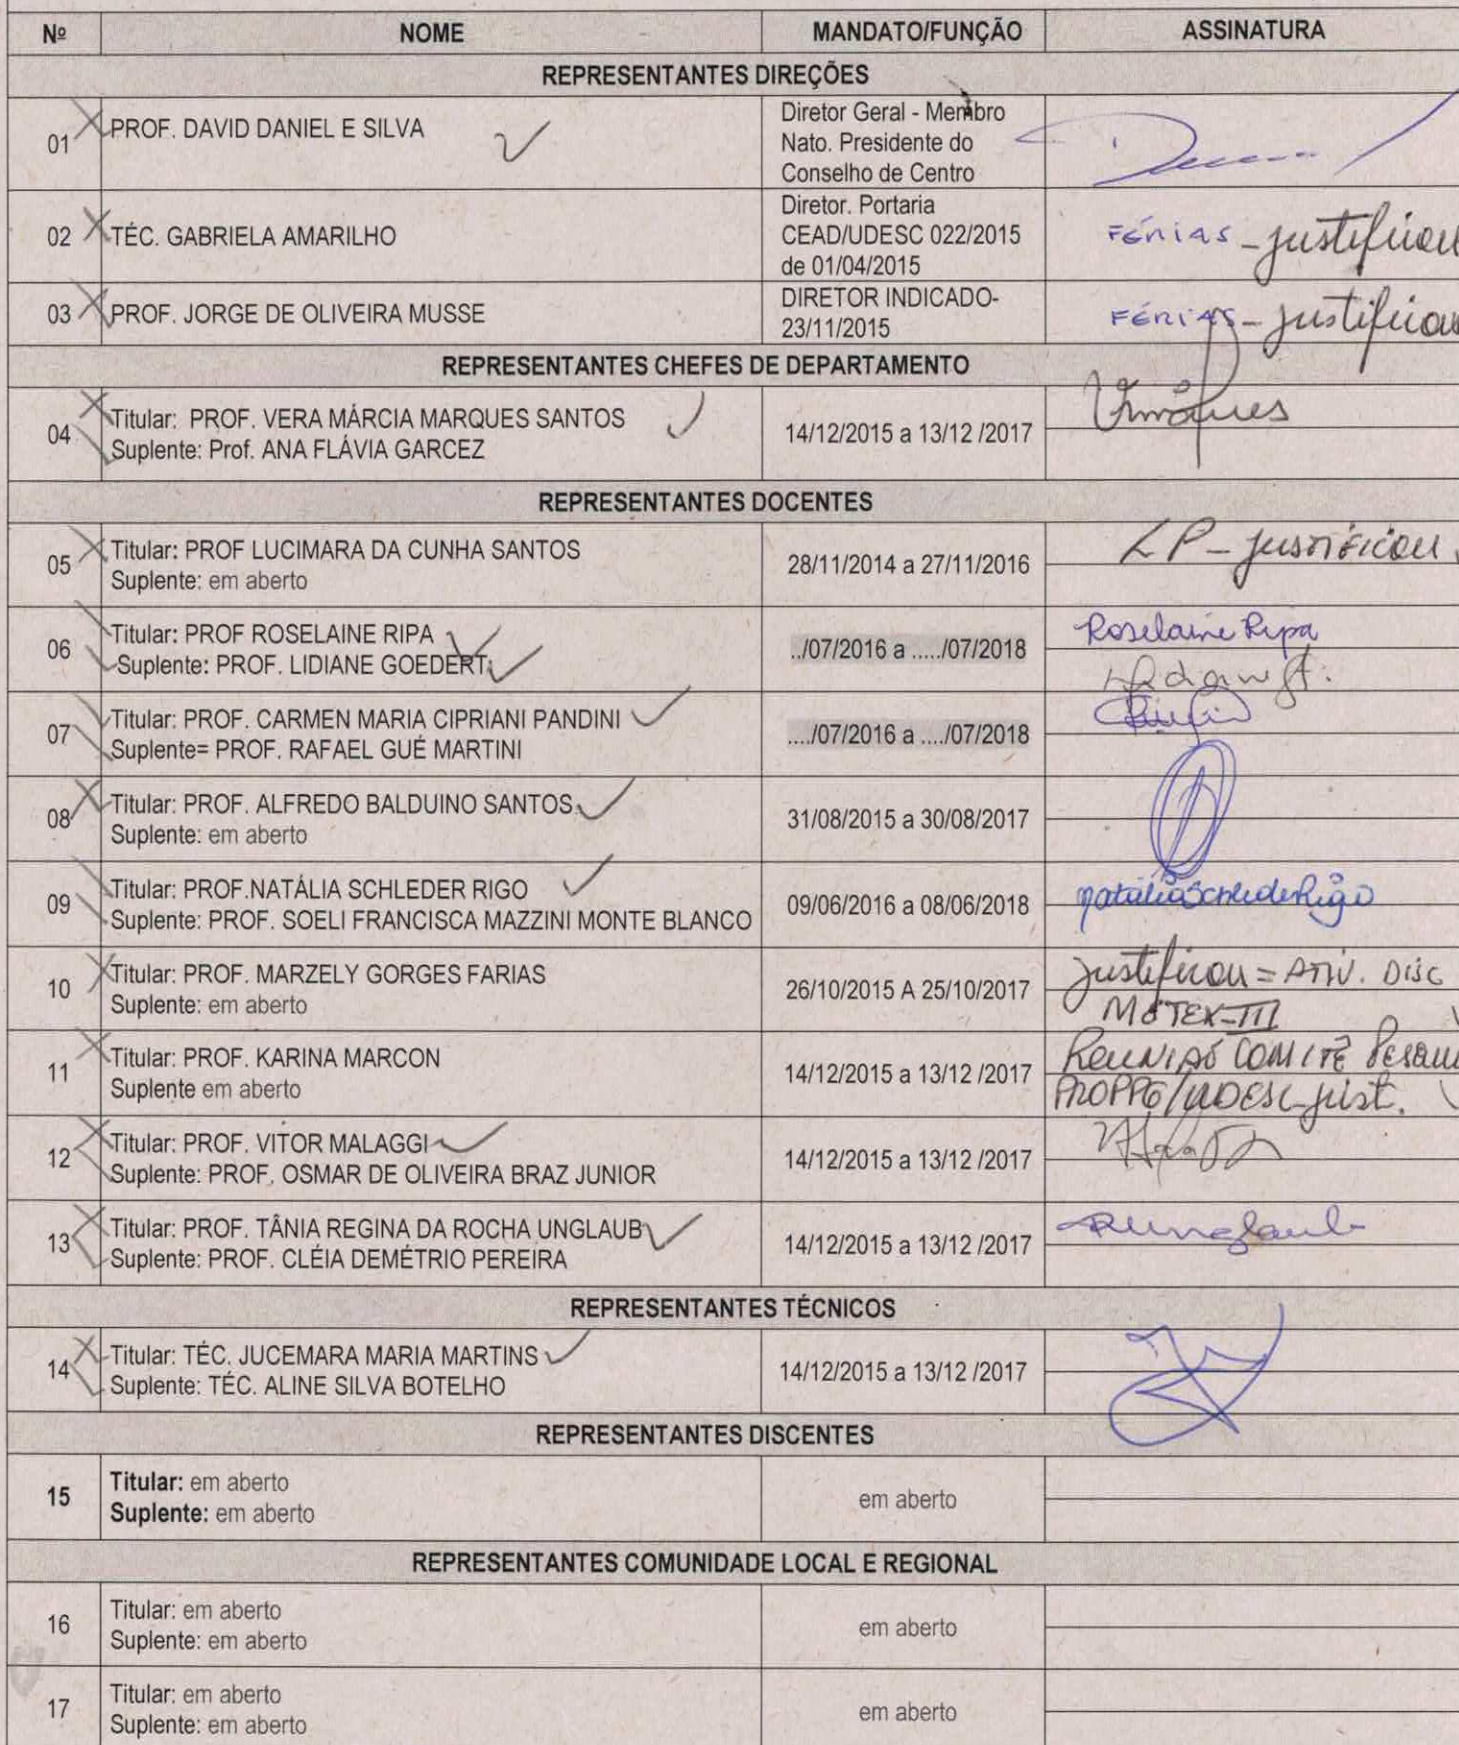 Nº NOME MANDATO/FUNÇÃO ASSINATURA
REPRESENTANTES DIREÇÕES
01 PROF. DAVID DANIEL E SILVA
Diretor Geral - Membro
Nato. Presidente do
Conselho de Centro
02 TÉC. GABRIELA AMARILHO
Diretor. Portaria
CEAD/UDESC 022/2015
de 01/04/2015
FÉRIAS - justificou
03 PROF. JORGE DE OLIVEIRA MUSSE
DIRETOR INDICADO-
23/11/2015
FÉRIAS - justificou
REPRESENTANTES CHEFES DE DEPARTAMENTO
04
Titular: PROF. VERA MÁRCIA MARQUES SANTOS
Suplente: Prof. ANA FLÁVIA GARCEZ
14/12/2015 a 13/12 /2017
REPRESENTANTES DOCENTES
05
Titular: PROF LUCIMARA DA CUNHA SANTOS
Suplente: em aberto
28/11/2014 a 27/11/2016
LP - justificou
06
Titular: PROF ROSELAINE RIPA
Suplente: PROF. LIDIANE GOEDERT
../07/2016 a ...../07/2018
Roselaine Ripa
07
Titular: PROF. CARMEN MARIA CIPRIANI PANDINI
Suplente= PROF. RAFAEL GUÉ MARTINI
..../07/2016 a ..../07/2018
08
Titular: PROF. ALFREDO BALDUINO SANTOS
Suplente: em aberto
31/08/2015 a 30/08/2017
09
Titular: PROF.NATÁLIA SCHLEDER RIGO
Suplente: PROF. SOELI FRANCISCA MAZZINI MONTE BLANCO
09/06/2016 a 08/06/2018
Natália Schleder Rigo
10
Titular: PROF. MARZELY GORGES FARIAS
Suplente: em aberto
26/10/2015 A 25/10/2017
justificou = ATIV. DISC
MOTEX-III
11
Titular: PROF. KARINA MARCON
Suplente em aberto
14/12/2015 a 13/12 /2017
REUNIÃO COMITÊ
PROPPG/UDESC-just.
12
Titular: PROF. VITOR MALAGGI
Suplente: PROF. OSMAR DE OLIVEIRA BRAZ JUNIOR
14/12/2015 a 13/12 /2017
13
Titular: PROF. TÂNIA REGINA DA ROCHA UNGLAUB
Suplente: PROF. CLÉIA DEMÉTRIO PEREIRA
14/12/2015 a 13/12 /2017
REPRESENTANTES TÉCNICOS
14
Titular: TÉC. JUCEMARA MARIA MARTINS
Suplente: TÉC. ALINE SILVA BOTELHO
14/12/2015 a 13/12 /2017
REPRESENTANTES DISCENTES
15
Titular: em aberto
Suplente: em aberto
em aberto
REPRESENTANTES COMUNIDADE LOCAL E REGIONAL
16
Titular: em aberto
Suplente: em aberto
em aberto
17
Titular: em aberto
Suplente: em aberto
em aberto